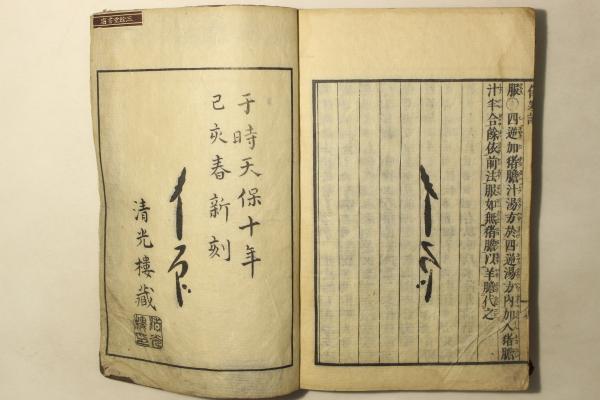 服〇四逆加猪膽汁湯方於四逆湯方內加入猪膽
汁半合餘依前法服如無猪膽以羊膽代之
于時天保十年
己亥春新刻
清光樓藏